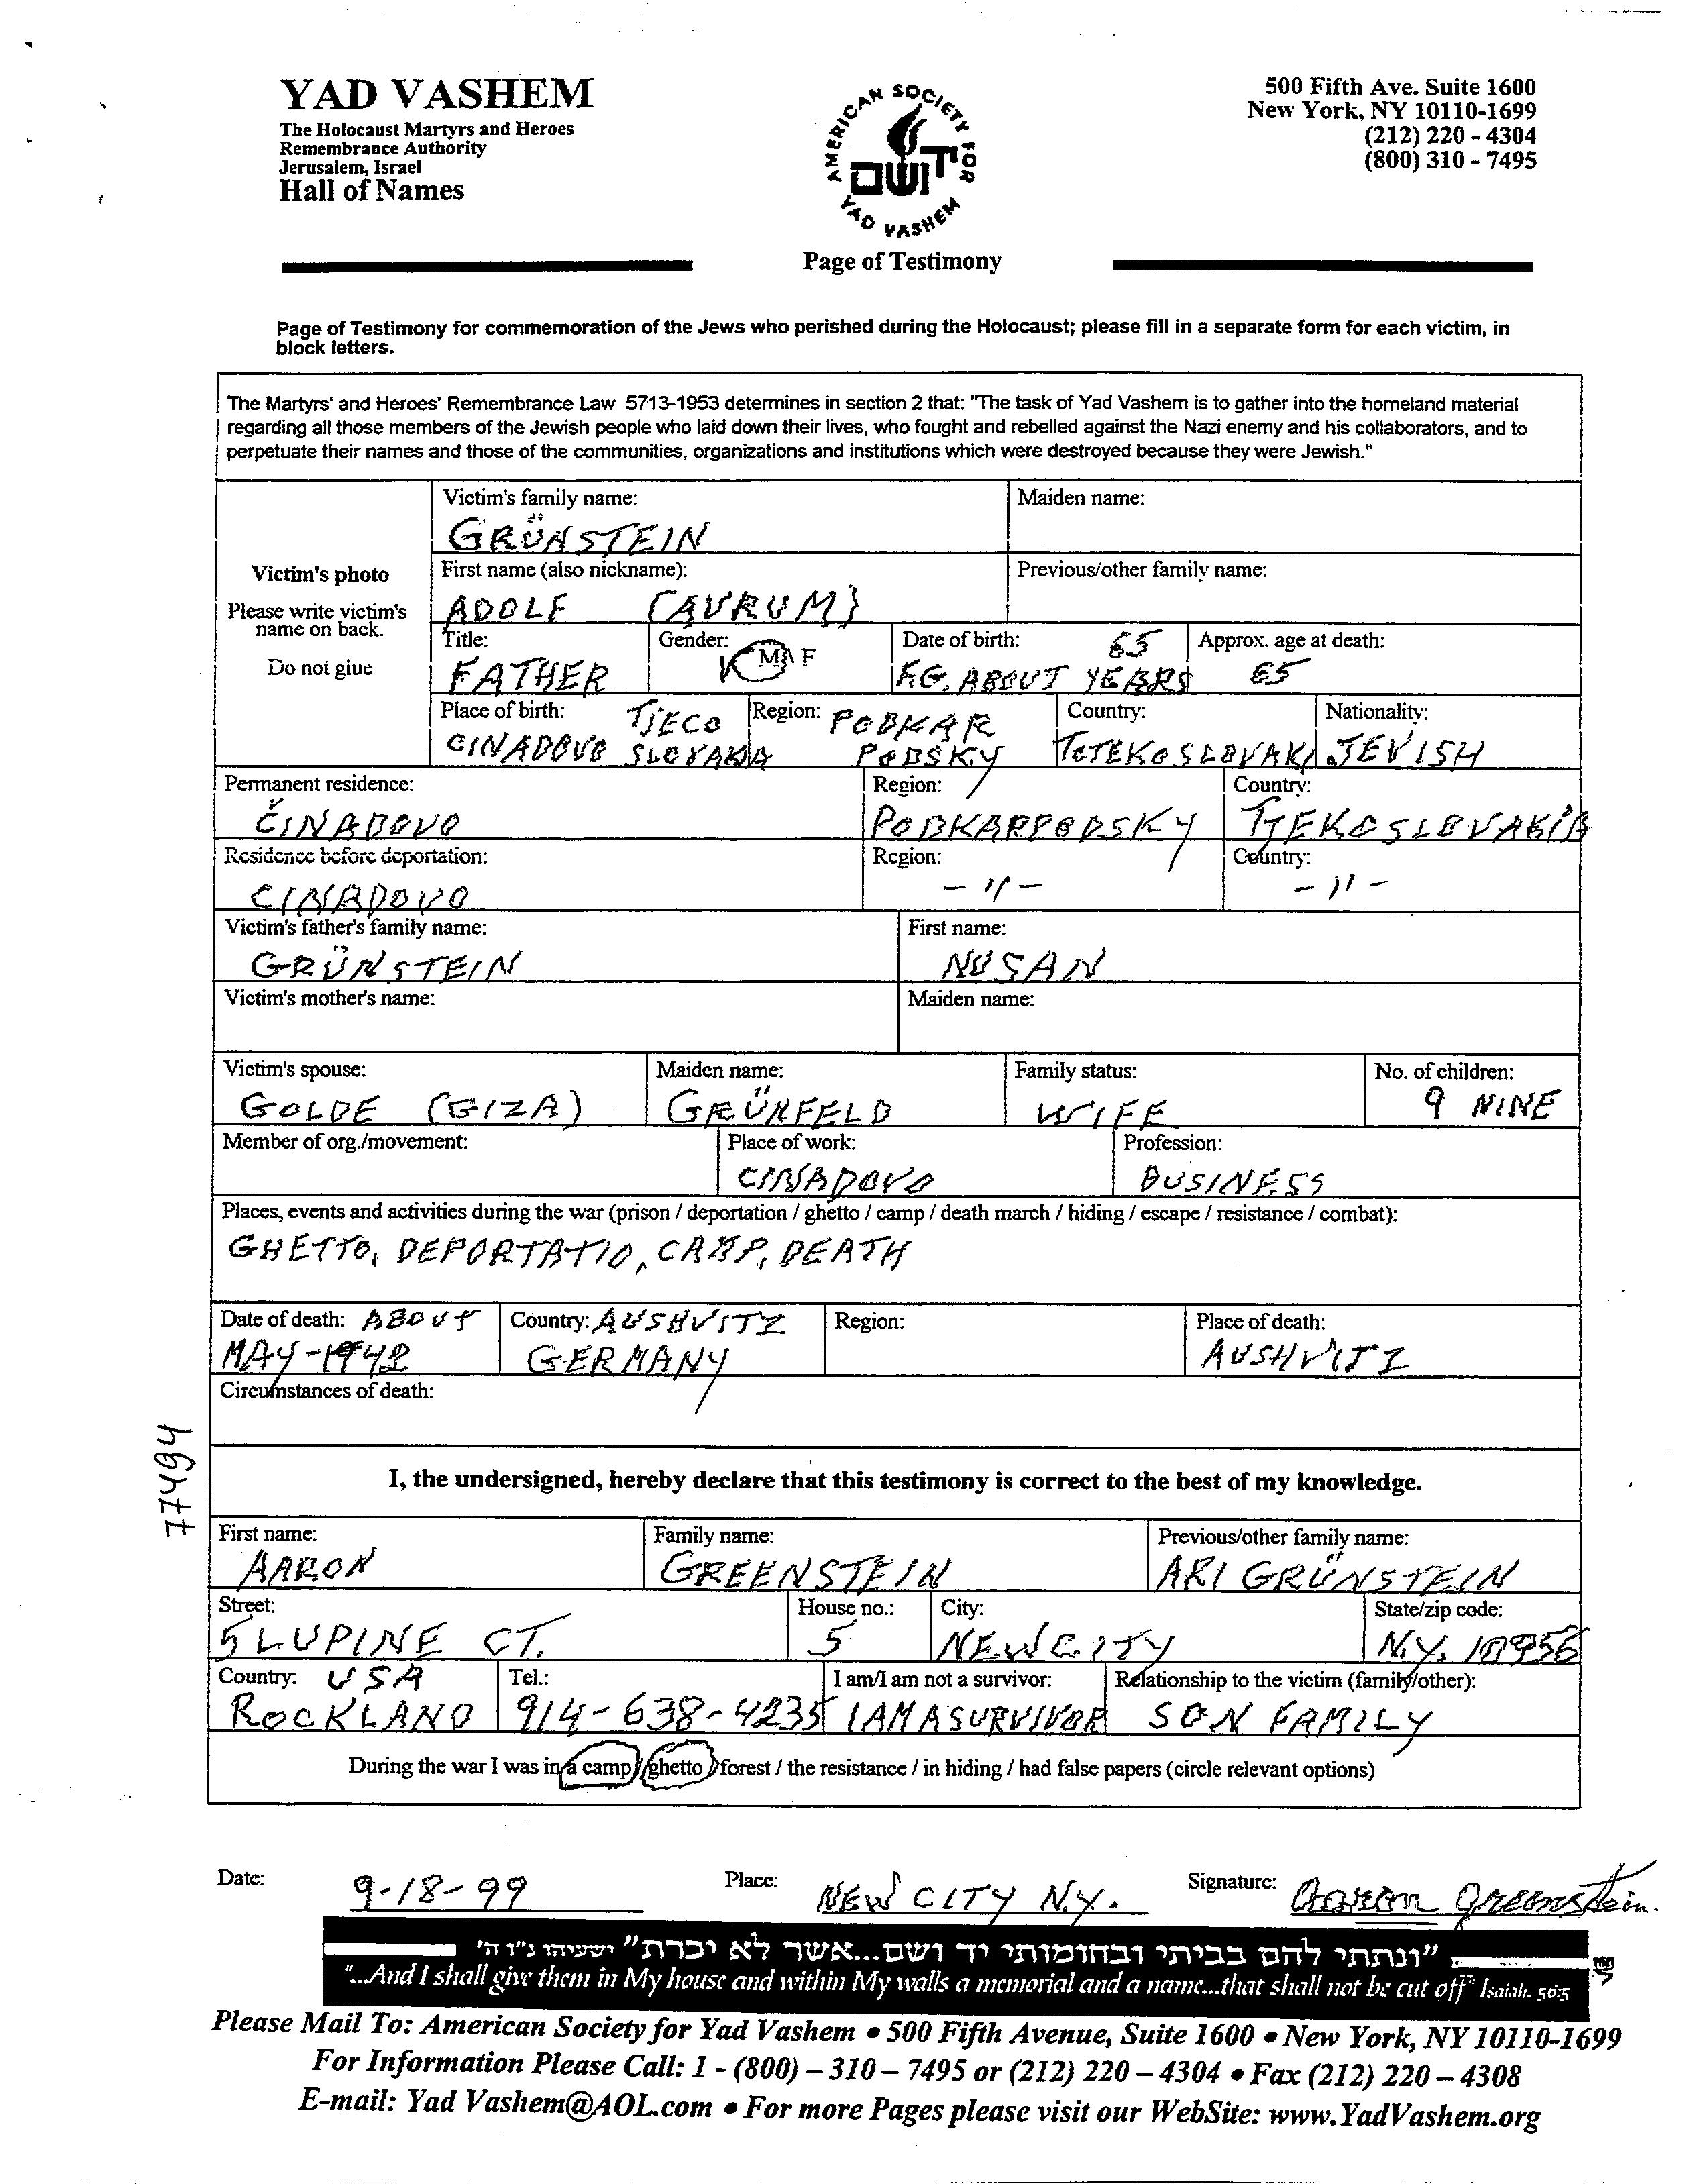 YAD VASHEM
The Holocaust Martyrs and Heroes
Remembrance Authority
Jerusalem, Israel
Hall of Names
AMERICAN SOCIETY FOR
יד ושם
YAD VASHEM
500 Fifth Ave. Suite 1600
New York, NY 10110-1699
(212) 220 - 4304
(800) 310 - 7495
Page of Testimony
Page of Testimony for commemoration of the Jews who perished during the Holocaust; please fill in a separate form for each victim, in
block letters.
The Martyrs' and Heroes' Remembrance Law 5713-1953 determines in section 2 that: "The task of Yad Vashem is to gather into the homeland material
regarding all those members of the Jewish people who laid down their lives, who fought and rebelled against the Nazi enemy and his collaborators, and to
perpetuate their names and those of the communities, organizations and institutions which were destroyed because they were Jewish."
Victim's photo
Please write victim's
name on back.
Do not glue
Victim's family name: Maiden name:
GRÜNSTEIN
First name (also nickname): Previous/other family name:
ADOLF (AVRUM)
Title: Gender: M F Date of birth: 65 Approx. age at death:
FATHER ABOUT YEARS 65
Place of birth: TJECO Region: PODKAR Country: Nationality:
CINADOVO SLOVAKIA PODSKY JEVISH
Permanent residence: Region: Country:
ČINADOVO PODKARPODSKY TJEKOSLOVAKIA
Residence before deportation: Region: Country:
CINADOVO - 〃 - - 〃 -
Victim's father's family name: First name:
GRÜNSTEIN NUSAN
Victim's mother's name: Maiden name:
Victim's spouse: Maiden name: Family status: No. of children:
GOLDE (GIZA) GRÜNFELD WIFE 9 NINE
Member of org./movement: Place of work: Profession:
CINADOVO BUSINESS
Places, events and activities during the war (prison / deportation / ghetto / camp / death march / hiding / escape / resistance / combat):
GHETTO, DEPORTATIO, CAMP, DEATH
Date of death: ABOUT Country: AUSHVITZ Region: Place of death:
MAY-1942 GERMANY AUSHVITZ
Circumstances of death:
77494
I, the undersigned, hereby declare that this testimony is correct to the best of my knowledge.
First name: Family name: Previous/other family name:
AARON GREENSTEIN ARI GRÜNSTEIN
Street: House no.: City: State/zip code:
5 LUPINE CT. 5 NEW CITY N.Y. 10956
Country: USA Tel.: I am/I am not a survivor: Relationship to the victim (family/other):
ROCKLAND 914-638-4235 I AM A SURVIVOR SON FAMILY
During the war I was in a camp / ghetto / forest / the resistance / in hiding / had false papers (circle relevant options)
Date: 9-18-99 Place: NEW CITY N.Y. Signature: Aaron Greenstein.
"ונתתי להם בביתי ובחומותי יד ושם...אשר לא יכרת" ישעיהו נ"ו ה'
"...And I shall give them in My house and within My walls a memorial and a name...that shall not be cut off" Isaiah. 56:5
Please Mail To: American Society for Yad Vashem • 500 Fifth Avenue, Suite 1600 • New York, NY 10110-1699
For Information Please Call: 1 - (800) – 310 – 7495 or (212) 220 – 4304 • Fax (212) 220 – 4308
E-mail: Yad Vashem@AOL.com • For more Pages please visit our WebSite: www.YadVashem.org